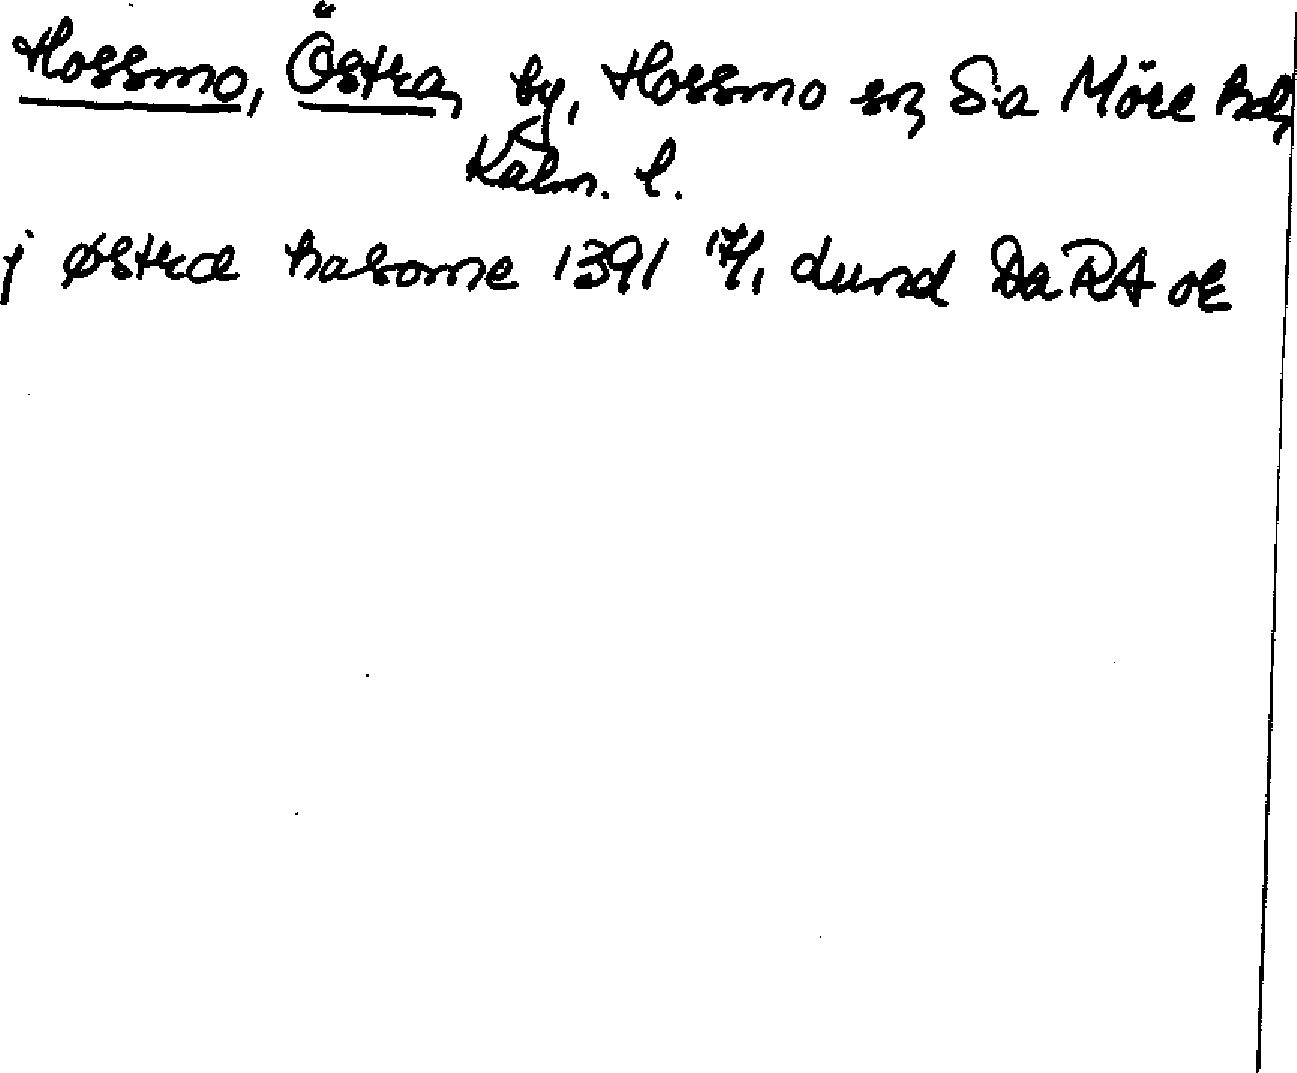 Hossmo, Östra, by, Hossmo sn, S:a Möre hd,
Kalm. l.
j østra hasome 1391 17/1 Lund DaRA or